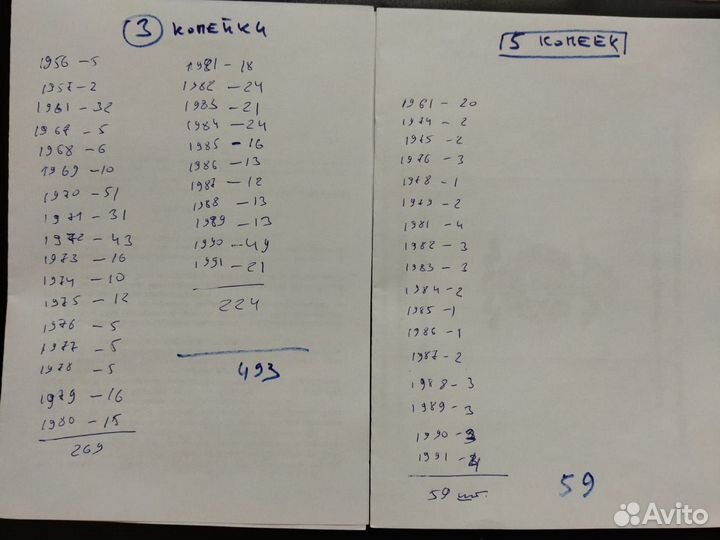 3 копейки
1956 - 5
1957 - 2
1961 - 32
1967 - 5
1968 - 6
1969 - 10
1970 - 51
1971 - 31
1972 - 43
1973 - 16
1974 - 10
1975 - 12
1976 - 5
1977 - 5
1978 - 5
1979 - 16
1980 - 15
269
1981 - 18
1982 - 24
1983 - 21
1984 - 24
1985 - 16
1986 - 13
1987 - 12
1988 - 13
1989 - 13
1990 - 49
1991 - 21
224
493
15 копеек
1961 - 20
1974 - 2
1975 - 2
1976 - 3
1978 - 1
1979 - 2
1981 - 4
1982 - 3
1983 - 3
1984 - 2
1985 - 1
1986 - 1
1987 - 2
1988 - 3
1989 - 3
1990 - 3
1991 - 4
59 шт.
59
Avito